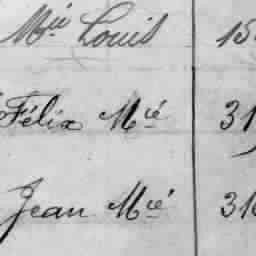 Mié Louis 15
Félix Mié 31
Jean Mié 31